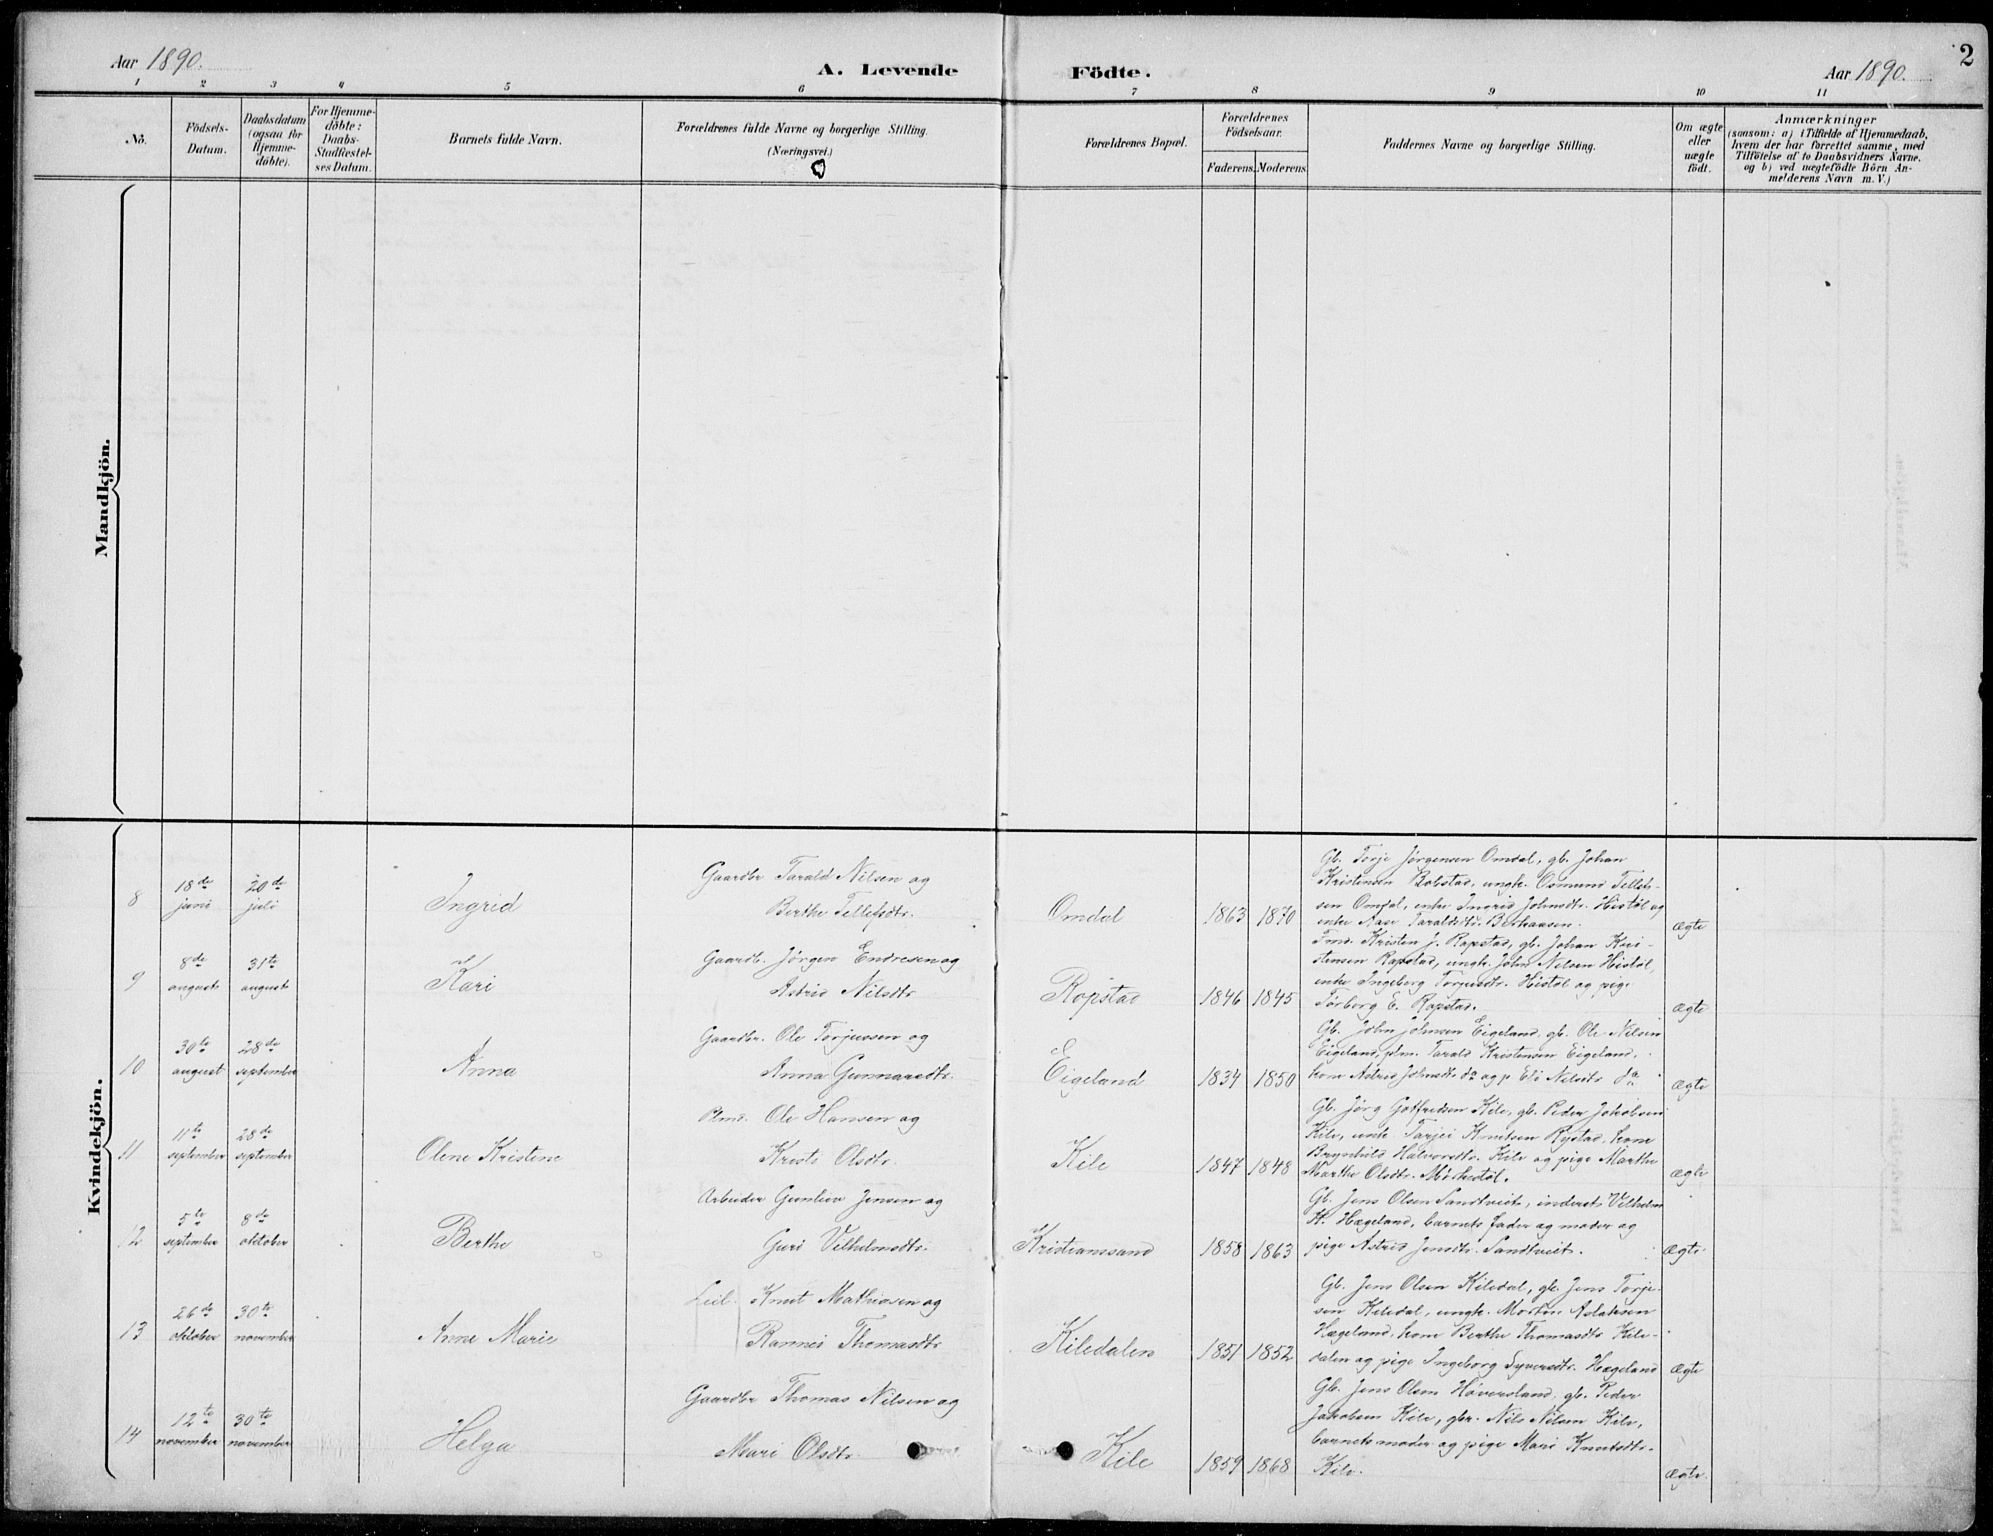 2
Aar 1890.
A. Levende Födte.
Aar 1890.
1 2 3 4 5 6 7 8 9 10 11
No.
Födsels-
Datum.
Daabsdatum
(ogsaa for
Hjemme-
döbte).
For Hjemme-
döbte:
Daabs-
Stadfæstel-
ses Datum.
Barnets fulde Navn.
Forældrenes fulde Navne og borgerlige Stilling.
(Næringsvei.)
Forældrenes Bopæl.
Forældrenes
Födselsaar.
Faderens. Moderens.
Faddernes Navne og borgerlige Stilling.
Om ægte
eller
uægte
födt.
Anmærkninger
(saasom: a) i Tilfælde af Hjemmedaab,
hvem der har forrettet samme, med
Tilföielse af to Daabsvidners Navne.
og b) ved uægtefödte Börn An-
melderens Navn m. V.)
Mandkjön.
Kvindekjön.
8
18de
juni
20de
juli
Ingrid
Gaardbr Tarald Nilsen og
Berthe Tellefsdtr.
Omdal
1863 1870
Gb. Torje Jørgensen Omdal, gb. Johan
Kristensen Robstad, ungk. Osmund Tellef-
sen Omdal, enke Ingrid Johnsdtr. Histøl og
enke Aase Taraldsdtr.
ægte
9
8de
august
31te
august
Kari
Gaardb. Jørgen Endresen og
Astrid Nilsdtr
Ropstad
1846 1845
Kristen J. Ropstad, gb. Johan Kri-
stensen Ropstad, ungk. John Nilsen Histøl,
enke Ingeborg Torjusdtr. Histøl og pige
Torborg E. Ropstad.
ægte
10
30te
august
28de
september
Anna
Gaardbr. Ole Torjussen og
Anna Gunnarsdtr.
Eigeland
1834 1850
Gb. John Johnsen Eigeland, gb. Ole Nilsen
Eigeland, plm. Tarald Kristensen Eigeland,
kone Astrid Johnsdtr do og p. Eli Nilsdtr do
ægte
11
11te
september
28de
september
Olene Kristene
Plmd. Ole Hansen og
Olsdtr.
Kile
1847 1848
Gb. Jørg Gotfredsen Kile, gb. Peder Jakobsen
Kile, Tarjei Knutsen Rystad, kone
Brynhild Halvorsdtr. Kile og pige Marthe
Marthe Olsdtr.
ægte
12
5te
september
8de
oktober
Berthe
Arbeider Gunleiv Jensen og
Guri Vilhelmsdtr.
Kristianssand
1858 1863
Gb. Jens Olsen Sandtveit, inderst Vilhelm
K. Hægeland, barnets fader og moder og
pige Astrid Jensdtr. Sandtveit.
ægte
13
26de
oktober
30te
november
Anne Marie
Leil. Knut Mathiasen og
Rannei Thomasdtr
Kiledalen
1851 1852
Gb. Jens Olsen Kiledal, gb. Jens Torje-
sen Kiledal, ungk. Martin Aslaksen
Hægeland, kone Berthe Thomasdtr Kile-
dalen og pige Ingeborg Syversdtr. Hægeland
ægte
14
12te
november
30te
november
Helga
Gaardbr Thomas Nilsen og
Mari Olsdtr.
Kile
1859 1868
Gb. Jens Olsen Høversland, gb. Peder
Jakobsen Kile, gbr. Nils Nilsen Kile,
barnets moder og pige Mari Knutsdtr.
Kile.
ægte.